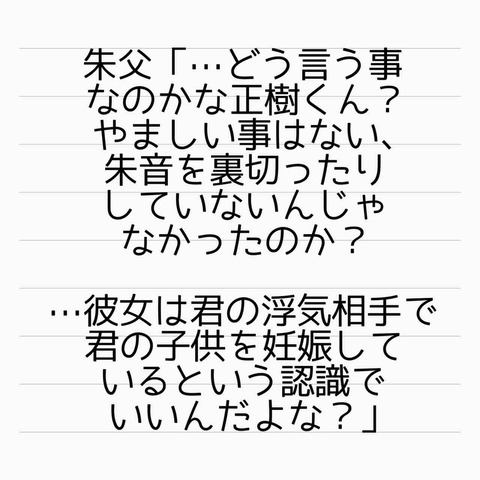 朱父「…どう言う事
なのかな正樹くん？
やましい事はない、
朱音を裏切ったり
していないんじゃ
なかったのか？
…彼女は君の浮気相手で
君の子供を妊娠して
いるという認識で
いいんだよな？」